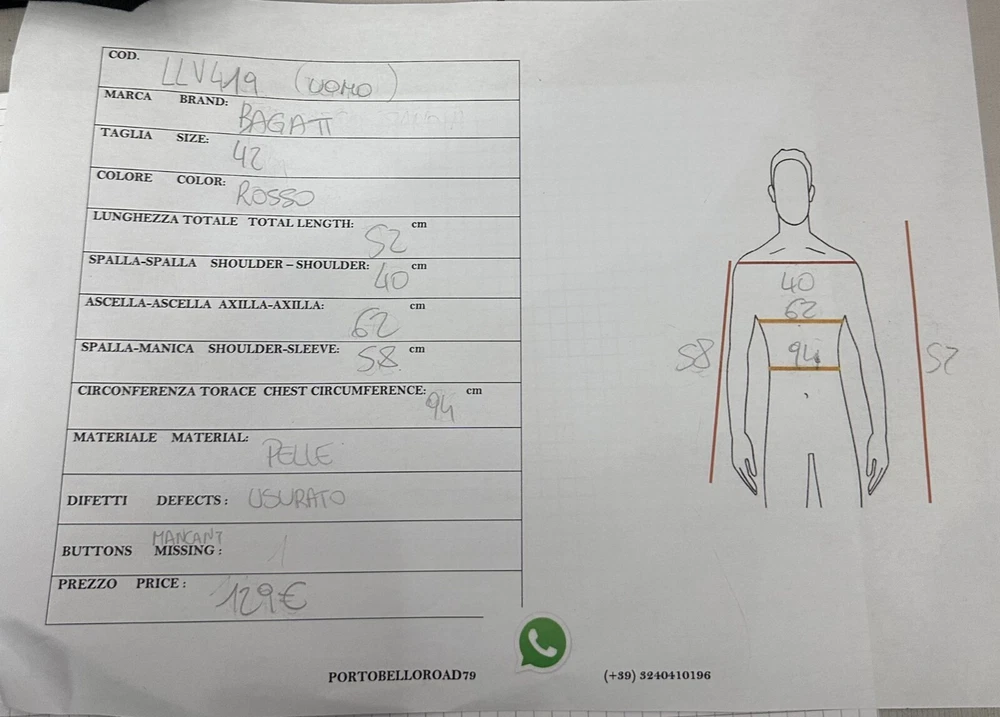 COD. LLV419 (UOMO)
MARCA BRAND: BAGATT
TAGLIA SIZE: 42
COLORE COLOR: ROSSO
LUNGHEZZA TOTALE TOTAL LENGTH: 52 cm
SPALLA-SPALLA SHOULDER – SHOULDER: 40 cm
ASCELLA-ASCELLA AXILLA-AXILLA: 62 cm
SPALLA-MANICA SHOULDER-SLEEVE: 58 cm
CIRCONFERENZA TORACE CHEST CIRCUMFERENCE: 94 cm
MATERIALE MATERIAL: PELLE
DIFETTI DEFECTS : USURATO
MANCANT
BUTTONS MISSING : /
PREZZO PRICE : 129€
40
62
94
58
52
PORTOBELLOROAD79 (+39) 3240410196